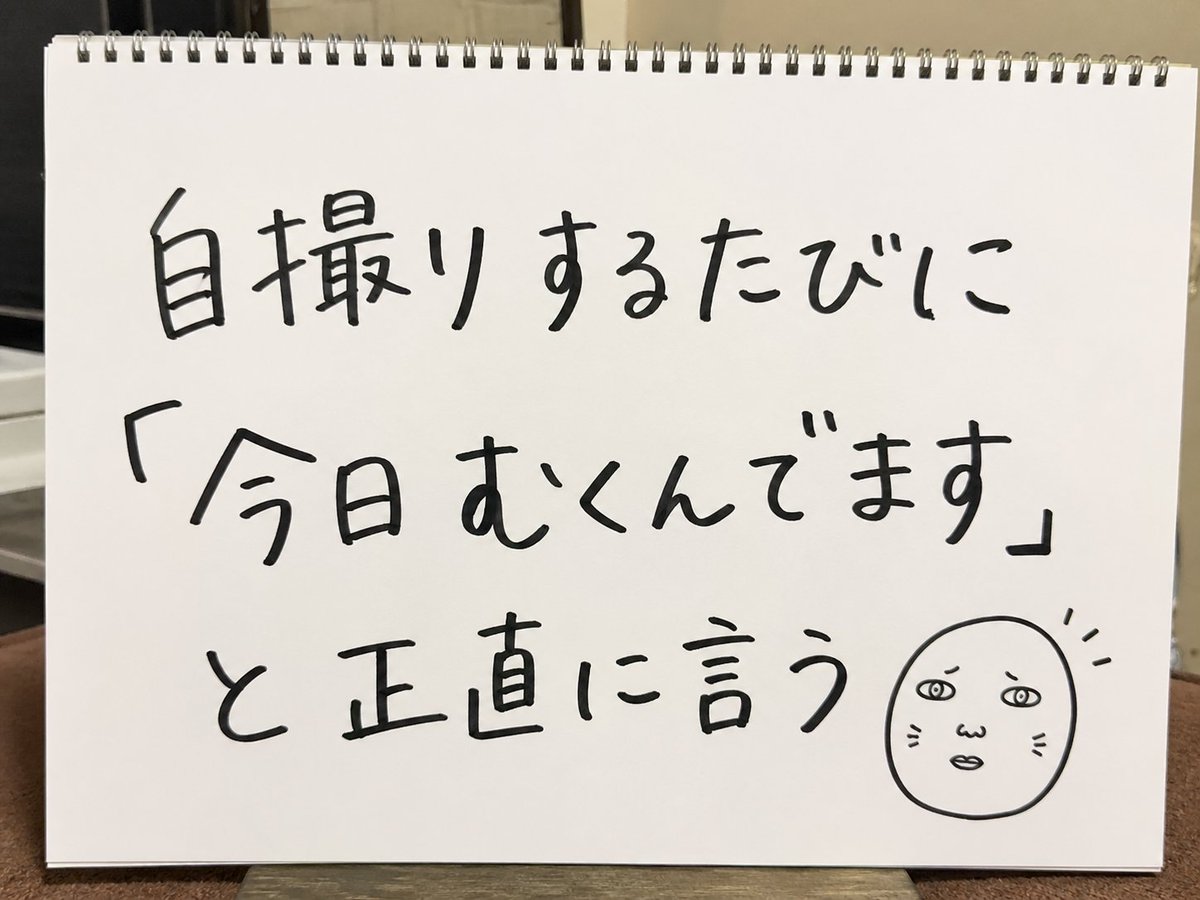 自撮りするたびに
「今日むくんでます」
と正直に言う